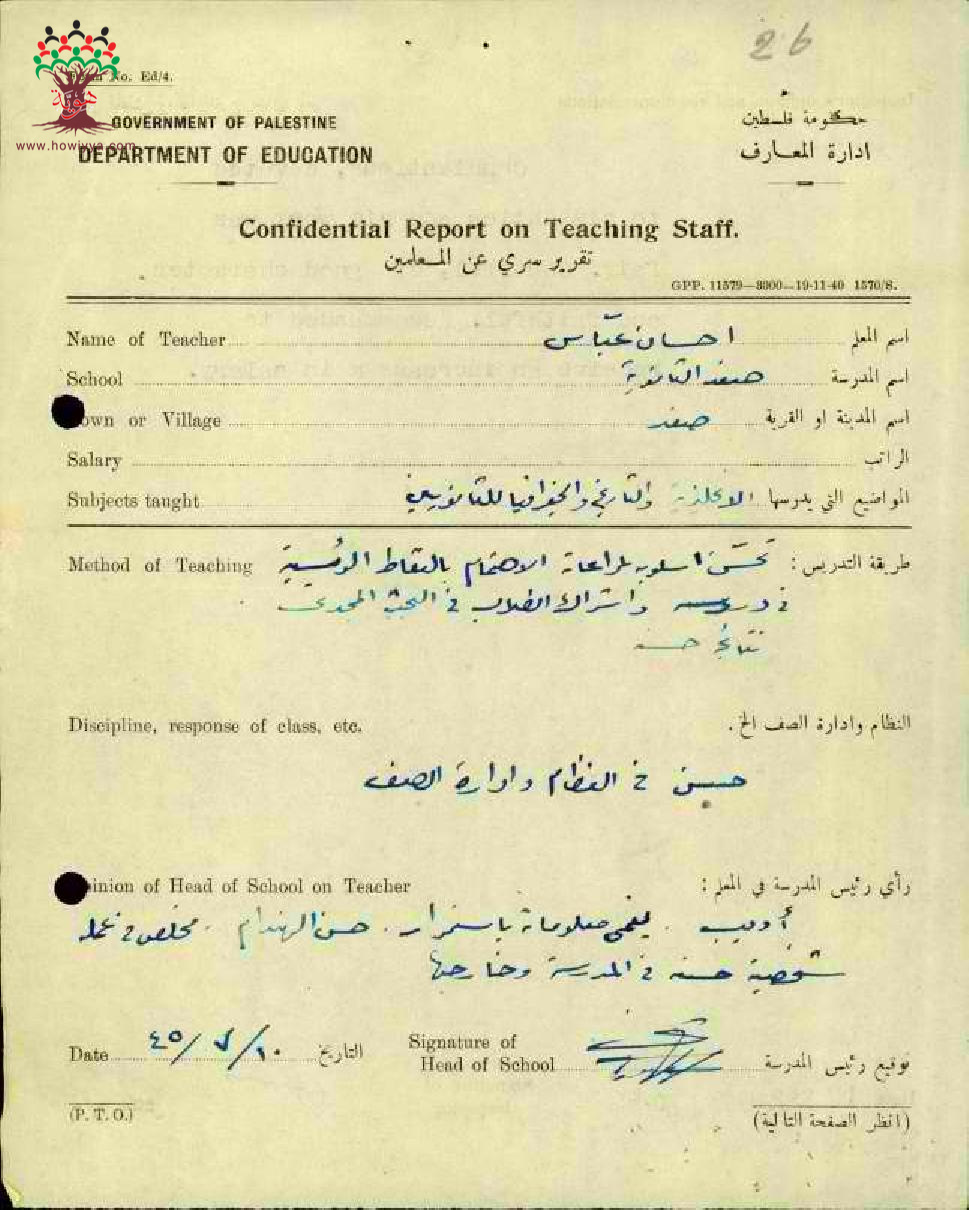 26
Form No. Ed/4.
هوية
www.howiyya.com
GOVERNMENT OF PALESTINE
حكومة فلسطين
DEPARTMENT OF EDUCATION
ادارة المعارف
Confidential Report on Teaching Staff.
تقرير سري عن المعلمين
GPP. 11579—3000—19-11-40 1570/S.
Name of Teacher احسان عبّاس اسم المعلم
School صفد الثانوية اسم المدرسة
Town or Village صفد اسم المدينة او القرية
Salary الراتب
Subjects taught الانجليزية والتاريخ والجغرافيا للثانويين المواضيع التي يدرسها
Method of Teaching تحسّن اسلوبه لمراعاة الاهتمام بالنقاط الرئيسية طريقة التدريس :
في دروسه واشتراك الطلاب في البحث المجدي
نتائج حسنة
Discipline, response of class, etc. النظام وادارة الصف الخ.
حسن في النظام وادارة الصف
Opinion of Head of School on Teacher رأي رئيس المدرسة في المعلم :
أديب . ينمي معلوماته باستمرار . حسن الهندام . مخلص في عمله
شخصية حسنة في المدرسة وخارجها
Date ١٠/٧/٤٥ التاريخ Signature of
Head of School توقيع رئيس المدرسة
(P. T. O.) (انظر الصفحة التالية)